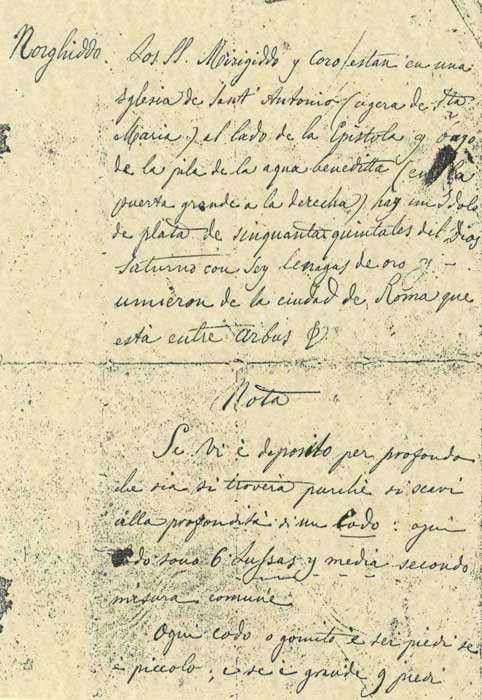 Norghiddo. Los SS. Mirigiddo y Coro, estan en una
Iglesia de Sant' Antonio (ogera de Sta
Maria) al lado de la Epistola y
de la pila de la agua beneditta (en la
puerta grande a la derecha) hay un Idolo
de plata de sinquanta quintales del Dios
Saturno con sey lenagas de oro y
umieron de la ciudad de Roma que
está entre Arbus
Nota
Se vi è deposito per profondo
che sia si troverà purchè si scavi
alla profondità di un Codo: ogni
codo sono 6 Lussas y media secondo
misura comune
Ogni codo o gomito è sei piedi se
è piccolo, e se è grande 9 piedi